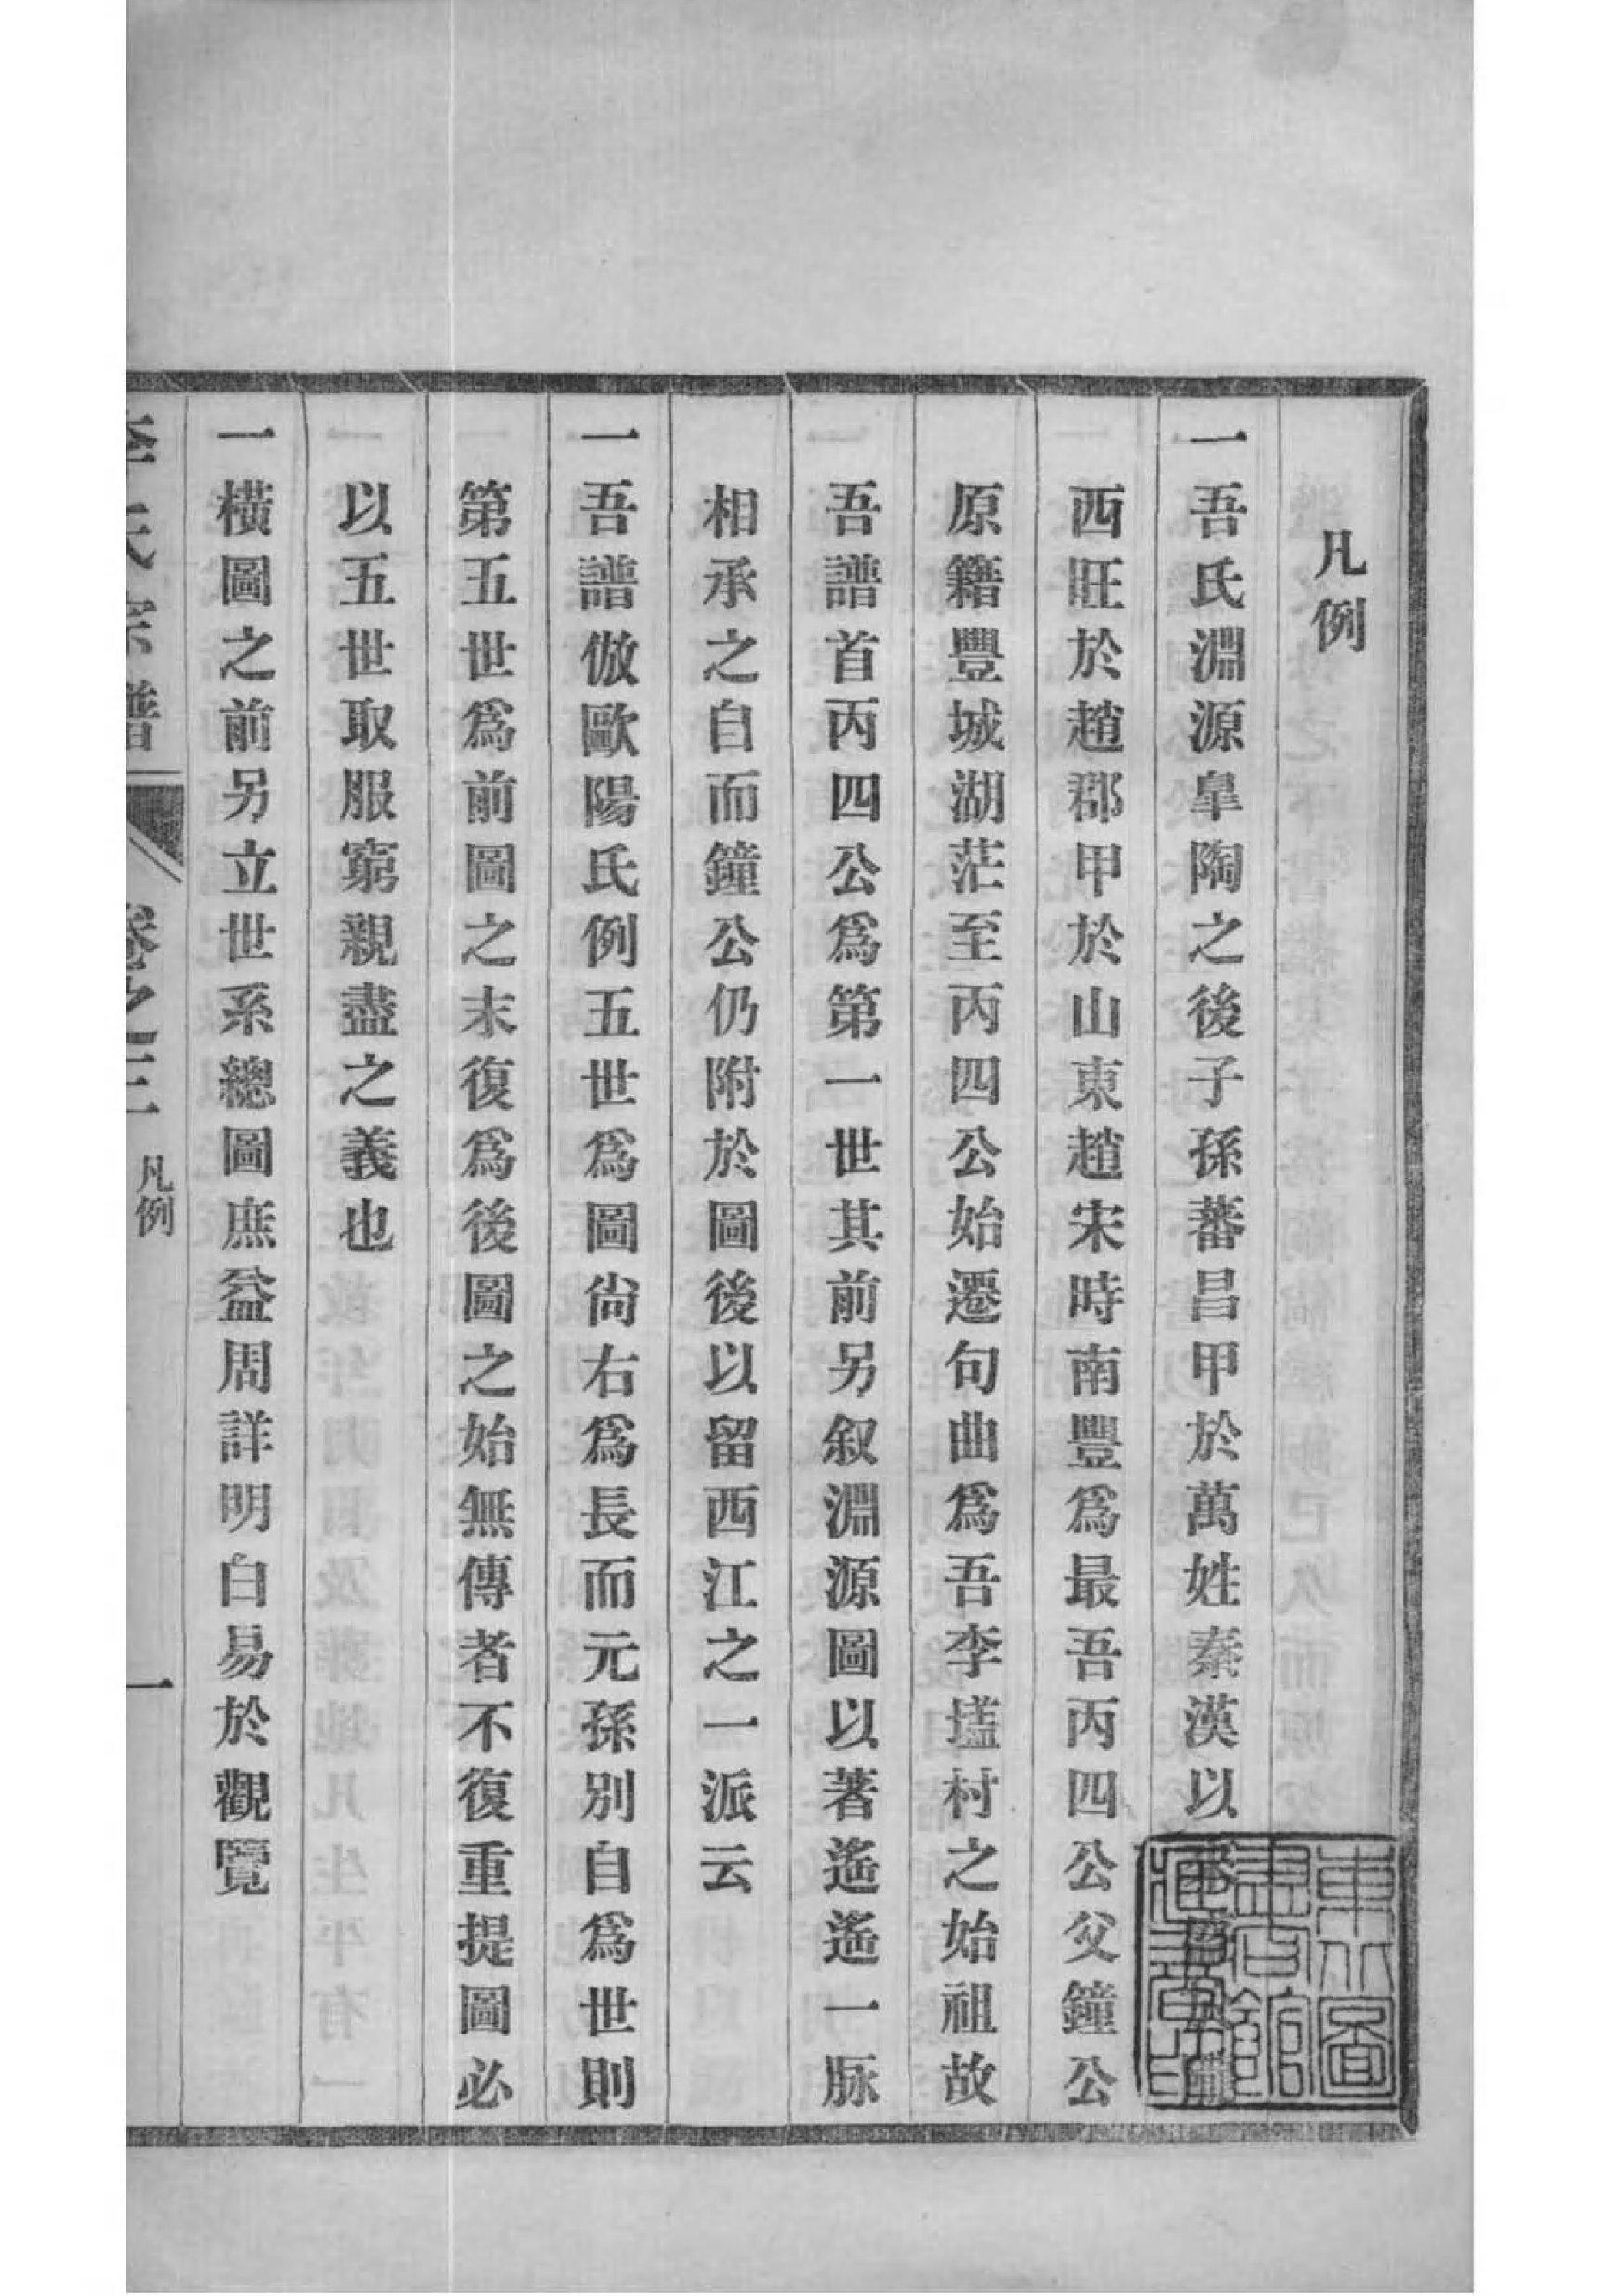 凡例
一吾氏淵源臯陶之後子孫蕃昌甲於萬姓秦漢以
西旺於趙郡甲於山東趙宋時南豐爲最吾丙四公父鐘公
原籍豐城湖茫至丙四公始遷句曲爲吾李墟村之始祖故
吾譜首丙四公爲第一世其前另叙淵源圖以著遙遙一脈
相承之自而鐘公仍附於圖後以留西江之一派云
一吾譜倣歐陽氏例五世爲圖尙右爲長而元孫別自爲世則
第五世爲前圖之末復爲後圖之始無傳者不復重提圖必
以五世取服窮親盡之義也
一橫圖之前另立世系總圖庶益周詳明白易於觀覽
李氏宗譜 卷之三 凡例 一